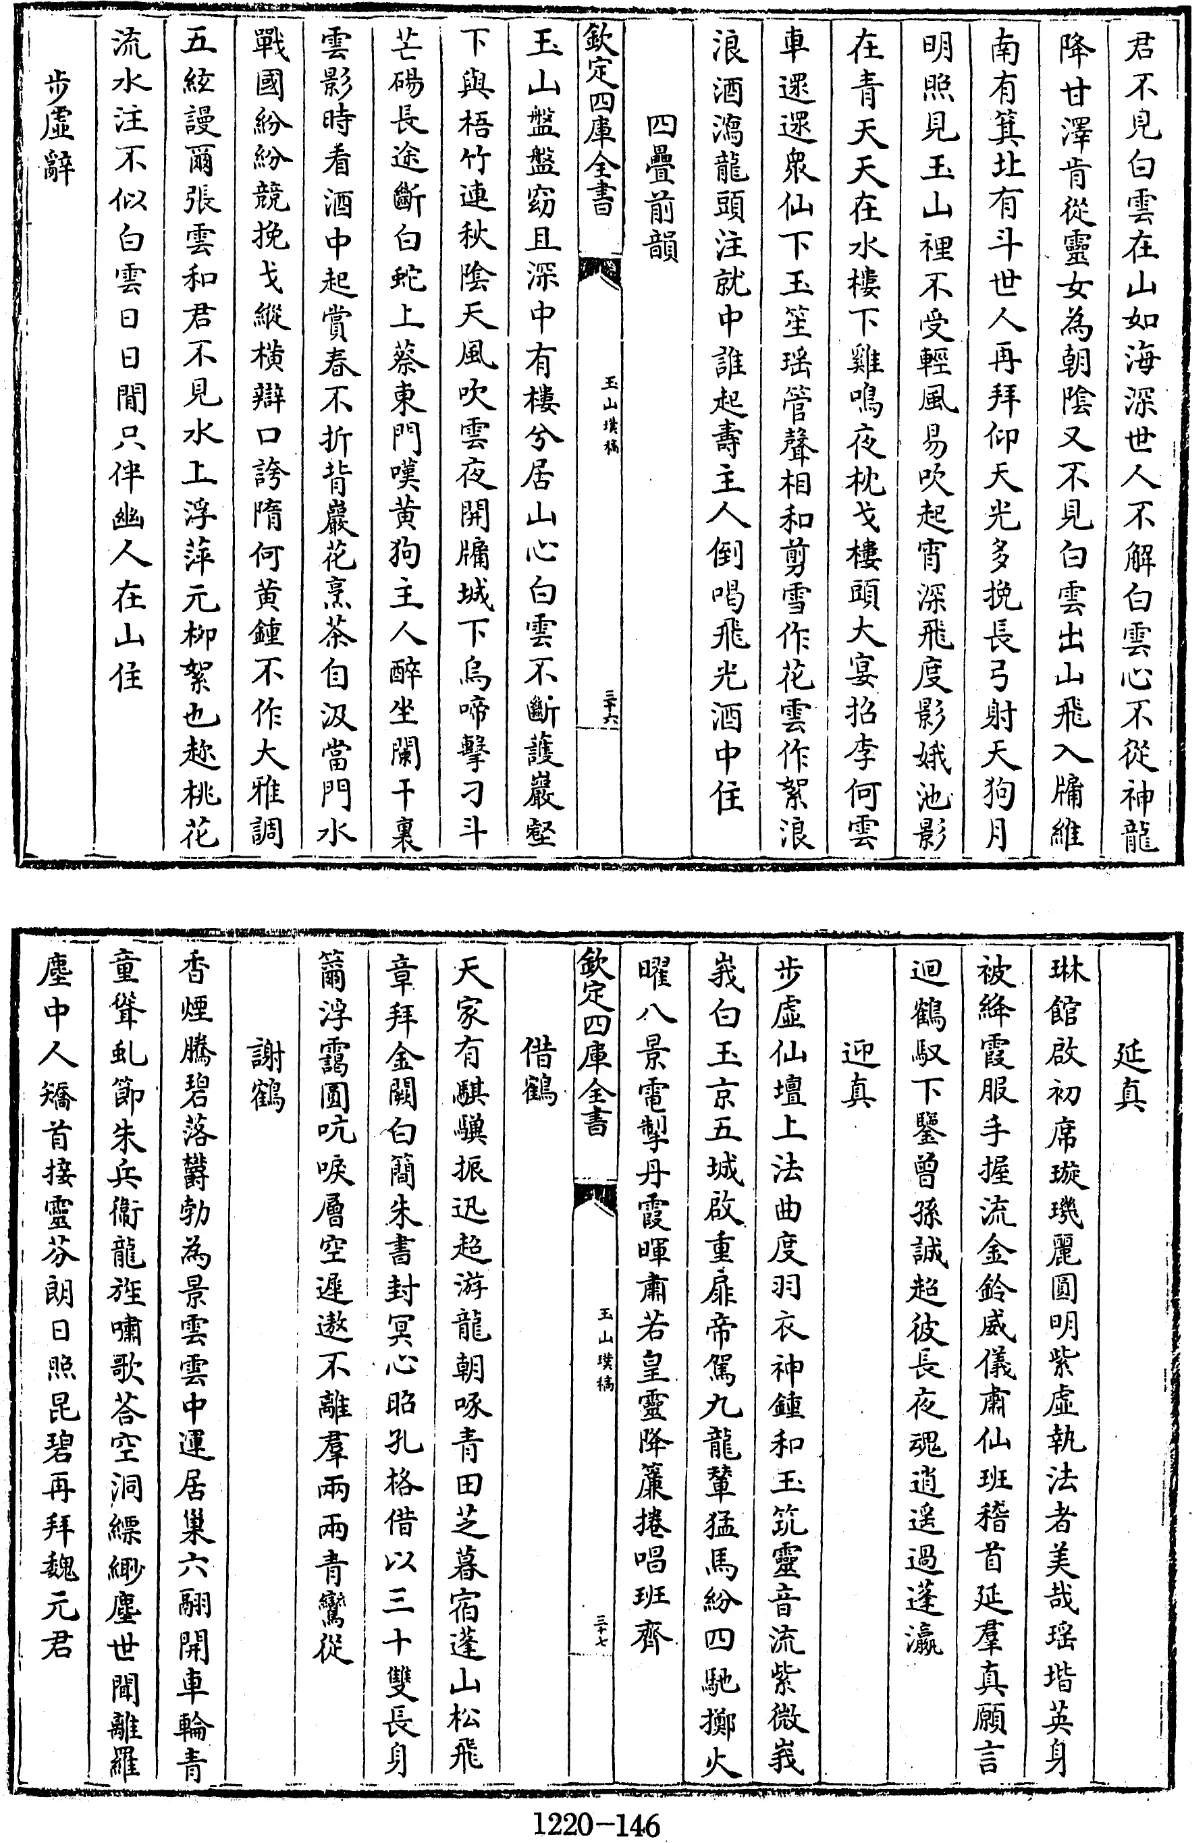 君不見白雲在山如海深世人不解白雲心不從神龍
降甘澤肯從靈女為朝隂又不見白雲出山飛入牖維
南有箕北有斗世人再拜仰天光多挽長弓射天狗月
明照見玉山裡不受輕風易吹起宵深飛度影娥池影
在青天天在水樓下雞鳴夜枕戈樓頭大宴招李何雲
車遝遝衆仙下玉笙瑶管聲相和剪雪作花雲作絮浪
浪酒瀉龍頭注就中誰起壽主人倒喝飛光酒中住
四疊前韻
欽定四庫全書
玉山璞稿
三十六
玉山盤盤窈且深中有樓兮居山心白雲不斷護巖壑
下與梧竹連秋隂天風吹雲夜開牖城下烏啼擊刁斗
芒碭長途斷白蛇上蔡東門嘆黄狗主人醉坐闌干裏
雲影時看酒中起賞春不折背巖花烹茶自汲當門水
戰國紛紛競挽戈縱横辯口誇隋何黄鍾不作大雅調
五絃謾爾張雲和君不見水上浮萍元柳絮也趂桃花
流水注不似白雲日日閒只伴幽人在山住
步虚辭
延真
琳館啟初席璇璣麗圓明紫虚執法者美哉瑶堦英身
被絳霞服手握流金鈴威儀肅仙班稽首延羣真願言
迴鶴馭下鑒曾孫誠超彼長夜魂逍遥過蓬瀛
迎真
步虚仙壇上法曲度羽衣神鍾和玉筑靈音流紫微峩
峩白玉京五城啟重扉帝駕九龍輦猛馬紛四馳擲火
曜八景電掣丹霞暉肅若皇靈降簾捲唱班齊
欽定四庫全書
玉山璞稿
三十七
借鶴
天家有騏驥振迅超游龍朝啄青田芝暮宿蓬山松飛
章拜金闕白簡朱書封冥心昭孔格借以三十雙長身
籋浮靄圓吭唳層空遲遨不離羣兩兩青鸞從
謝鶴
香煙騰碧落欝勃為景雲雲中運居巢六翮開車輪青
童聳虬節朱兵衛龍旌嘯歌荅空洞縹緲塵世聞離羅
塵中人矯首接靈芬朗日照昆碧再拜魏元君
1220-146